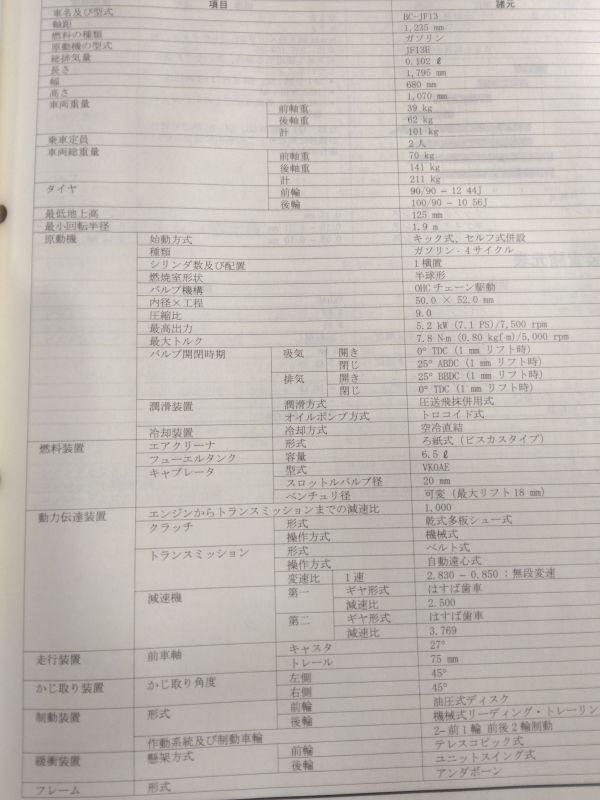 項目 諸元
車名及び型式 BC-JF13
軸距 1,235 mm
燃料の種類 ガソリン
原動機の型式 JF13E
総排気量 0.102 ℓ
長さ 1,795 mm
幅 680 mm
高さ 1,070 mm
車両重量 前軸重 39 kg
後軸重 62 kg
計 101 kg
乗車定員 2 人
車両総重量 前軸重 70 kg
後軸重 141 kg
計 211 kg
タイヤ 前輪 90/90 − 12 44J
後輪 100/90 − 10 56J
最低地上高 125 mm
最小回転半径 1.9 m
原動機 始動方式 キック式、セルフ式併設
種類 ガソリン・4サイクル
シリンダ数及び配置 1 横置
燃焼室形状 半球形
バルブ機構 OHC チェーン駆動
内径×工程 50.0 × 52.0 mm
圧縮比 9.0
最高出力 5.2 kW (7.1 PS)/7,500 rpm
最大トルク 7.8 N·m (0.80 kgf·m)/5,000 rpm
バルブ開閉時期 吸気 開き 0° TDC (1 mm リフト時)
閉じ 25° ABDC (1 mm リフト時)
排気 開き 25° BBDC (1 mm リフト時)
閉じ 0° TDC (1 mm リフト時)
潤滑装置 潤滑方式 圧送飛抹併用式
オイルポンプ方式 トロコイド式
冷却装置 冷却方式 空冷直結
燃料装置 エアクリーナ 形式 ろ紙式 (ビスカスタイプ)
フューエルタンク 容量 6.5 ℓ
キャブレータ 型式 VK0AE
スロットルバルブ径 20 mm
ベンチュリ径 可変 (最大リフト 18 mm)
動力伝達装置 エンジンからトランスミッションまでの減速比 1.000
クラッチ 形式 乾式多板シュー式
操作方式 機械式
トランスミッション 形式 ベルト式
操作方式 自動遠心式
変速比 1速 2.830 − 0.850 : 無段変速
減速機 第一 ギヤ形式 はすば歯車
減速比 2.500
第二 ギヤ形式 はすば歯車
減速比 3.769
走行装置 前車軸 キャスタ 27°
トレール 75 mm
かじ取り装置 かじ取り角度 左側 45°
右側 45°
制動装置 形式 前輪 油圧式ディスク
後輪 機械式リーディング・トレーリン
作動系統及び制動車輪 2−前1輪 前後2輪制動
緩衝装置 懸架方式 前輪 テレスコピック式
後輪 ユニットスイング式
フレーム 形式 アンダボーン